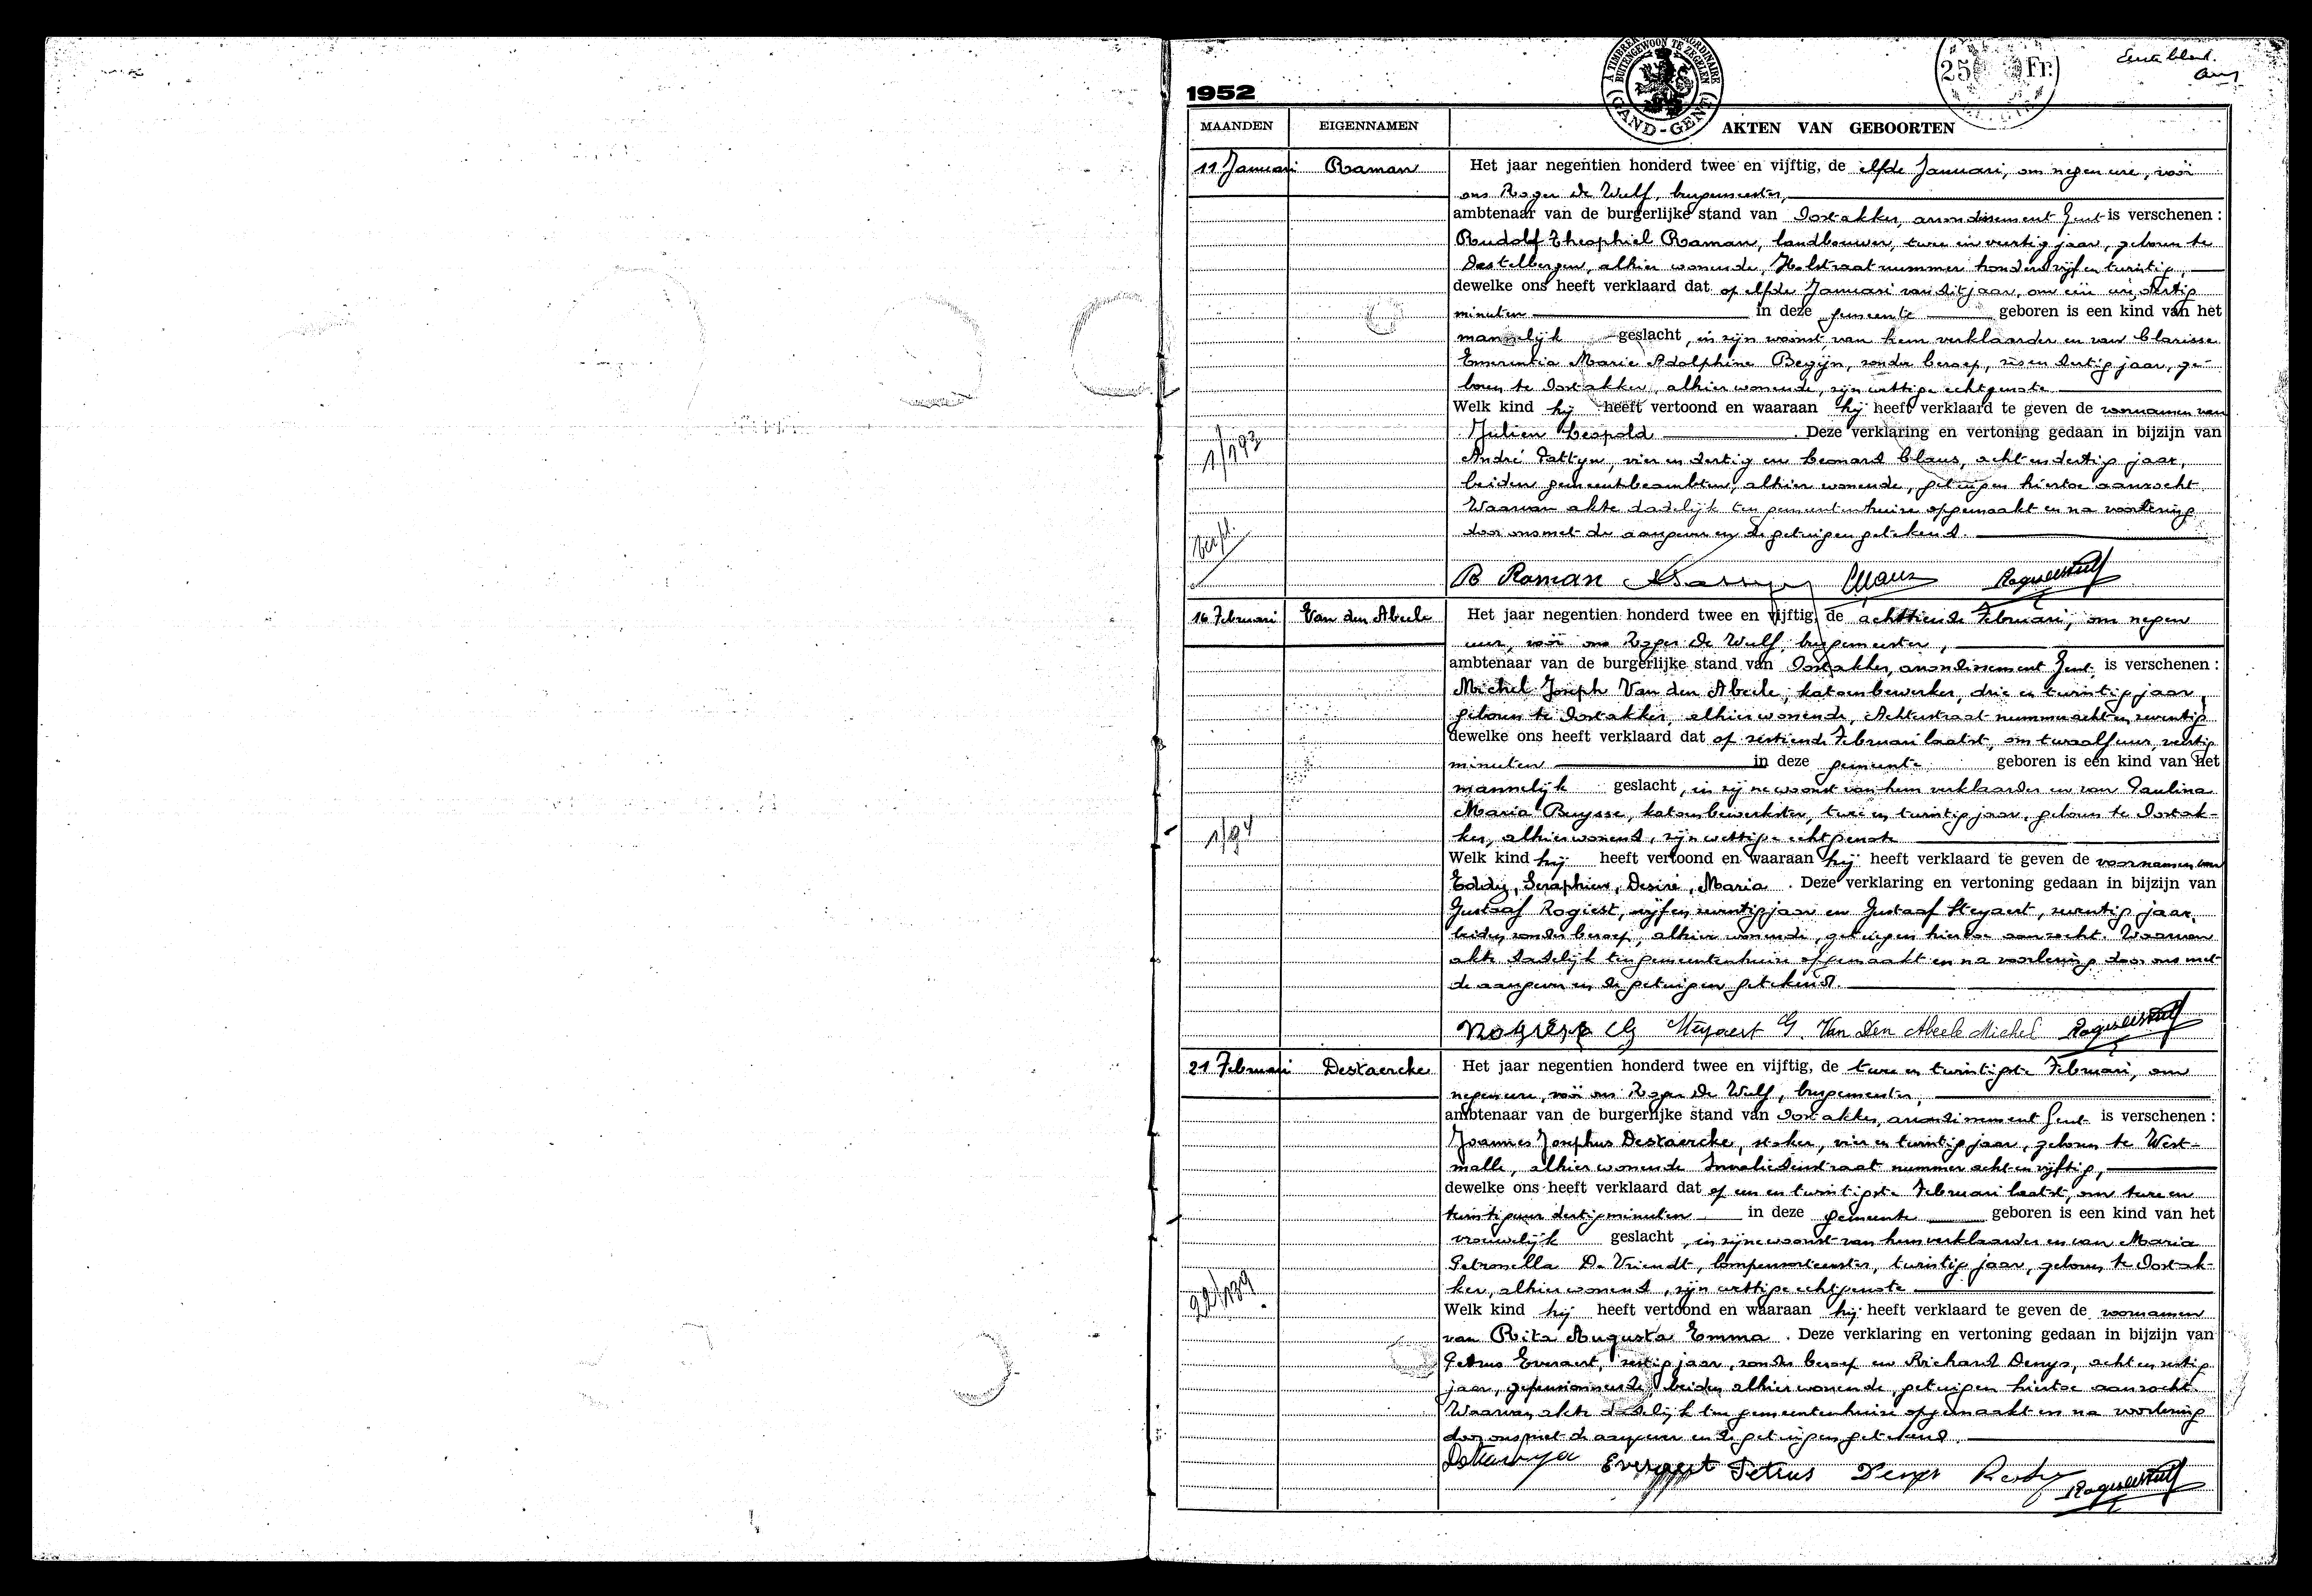 Eerste blad.
1952
A TIMBRER EXTRAORDINAIRE
BUITENGEWOON TE ZEGELEN
GAND-GENT
25 Fr.
MAANDEN EIGENNAMEN AKTEN VAN GEBOORTEN
11 Januari Raman Het jaar negentien honderd twee en vijftig, de elfde Januari, om negen ure, voor
ons Roger De Wulf, burgemeester,
ambtenaar van de burgerlijke stand van Oostakker, arrondissement Gent is verschenen :
Rudolf Theophiel Raman, landbouwer, twee en veertig jaar, geboren te
Destelbergen, alhier wonende, Holstraat nummer honderd vijf en twintig,
dewelke ons heeft verklaard dat op elfde Januari van dit jaar, om één ure, dertig
minuten in deze gemeente geboren is een kind van het
mannelijk geslacht, in zijn woonst, van hem verklaarder en van Clarisse
Emerentia Marie Adolphine Begijn, zonder beroep, zes en dertig jaar, ge-
boren te Oostakker, alhier wonende, zijn wettige echtgenote
Welk kind hij heeft vertoond en waaraan hij heeft verklaard te geven de voornamen van
Julien Leopold . Deze verklaring en vertoning gedaan in bijzijn van
1/193
André Pattyn, vier en dertig en Leonard Claus, acht en dertig jaar,
beiden gemeentebeambten, alhier wonende, getuigen hiertoe aanzocht.
Waarvan akte dadelijk ten gemeentenhuize opgemaakt en na voorlezing
door ons met de aangever en de getuigen getekend.
R Raman Claus
16 Februari Van den Abeele Het jaar negentien honderd twee en vijftig, de achttiende Februari, om negen
uur, voor ons Roger De Wulf, burgemeester,
ambtenaar van de burgerlijke stand van Oostakker, arrondissement Gent is verschenen :
Michel Joseph Van den Abeele, katoenbewerker, drie en twintig jaar,
geboren te Oostakker, alhier wonende, Achterstraat nummer acht en zeventig
dewelke ons heeft verklaard dat op zestiende Februari laatst, om twaalf uur, veertig
minuten in deze gemeente geboren is een kind van het
mannelijk geslacht, in zijne woonst van hem verklaarder en van Paulina
Maria Buysse, katoenbewerkster, twee en twintig jaar, geboren te Oostak-
1/94
ker, alhier wonend, zijn wettige echtgenote
Welk kind hij heeft vertoond en waaraan hij heeft verklaard te geven de voornamen van
Eddy, Seraphien, Desiré, Maria . Deze verklaring en vertoning gedaan in bijzijn van
Gustaaf Rogiest, vijf en zeventig jaar en Gustaaf Steyaert, zeventig jaar,
beiden zonder beroep, alhier wonende, getuigen hiertoe aanzocht. Waarvan
akte dadelijk ten gemeentenhuize opgemaakt en na voorlezing door ons met
de aangever en de getuigen getekend.
Rogiest G Steyaert G. Van Den Abeele Michel
21 Februari Destaercke Het jaar negentien honderd twee en vijftig, de twee en twintigste Februari, om
negen ure, voor ons Roger De Wulf, burgemeester,
ambtenaar van de burgerlijke stand van Oostakker, arrondissement Gent is verschenen :
Joannes Josephus Destaercke, stoker, vier en twintig jaar, geboren te West-
malle, alhier wonende Invalidenstraat nummer acht en vijftig,
dewelke ons heeft verklaard dat op een en twintigste Februari laatst, om twee en
twintig uur dertig minuten in deze gemeente geboren is een kind van het
vrouwelijk geslacht, in zijne woonst van hem verklaarder en van Maria
Petronella De Vriendt, lompensorteerster, twintig jaar, geboren te Oostak-
22/139
ker, alhier wonend, zijn wettige echtgenote
Welk kind hij heeft vertoond en waaraan hij heeft verklaard te geven de voornamen
van Rita Augusta Emma . Deze verklaring en vertoning gedaan in bijzijn van
Petrus Everaert, zestig jaar, zonder beroep en Richard Denys, acht en zestig
jaar, gepensionneerde, beiden alhier wonende, getuigen hiertoe aanzocht.
Waarvan akte dadelijk ten gemeentenhuize opgemaakt en na voorlezing
door ons met de aangever en de getuigen getekend.
Everaert Petrus Denys